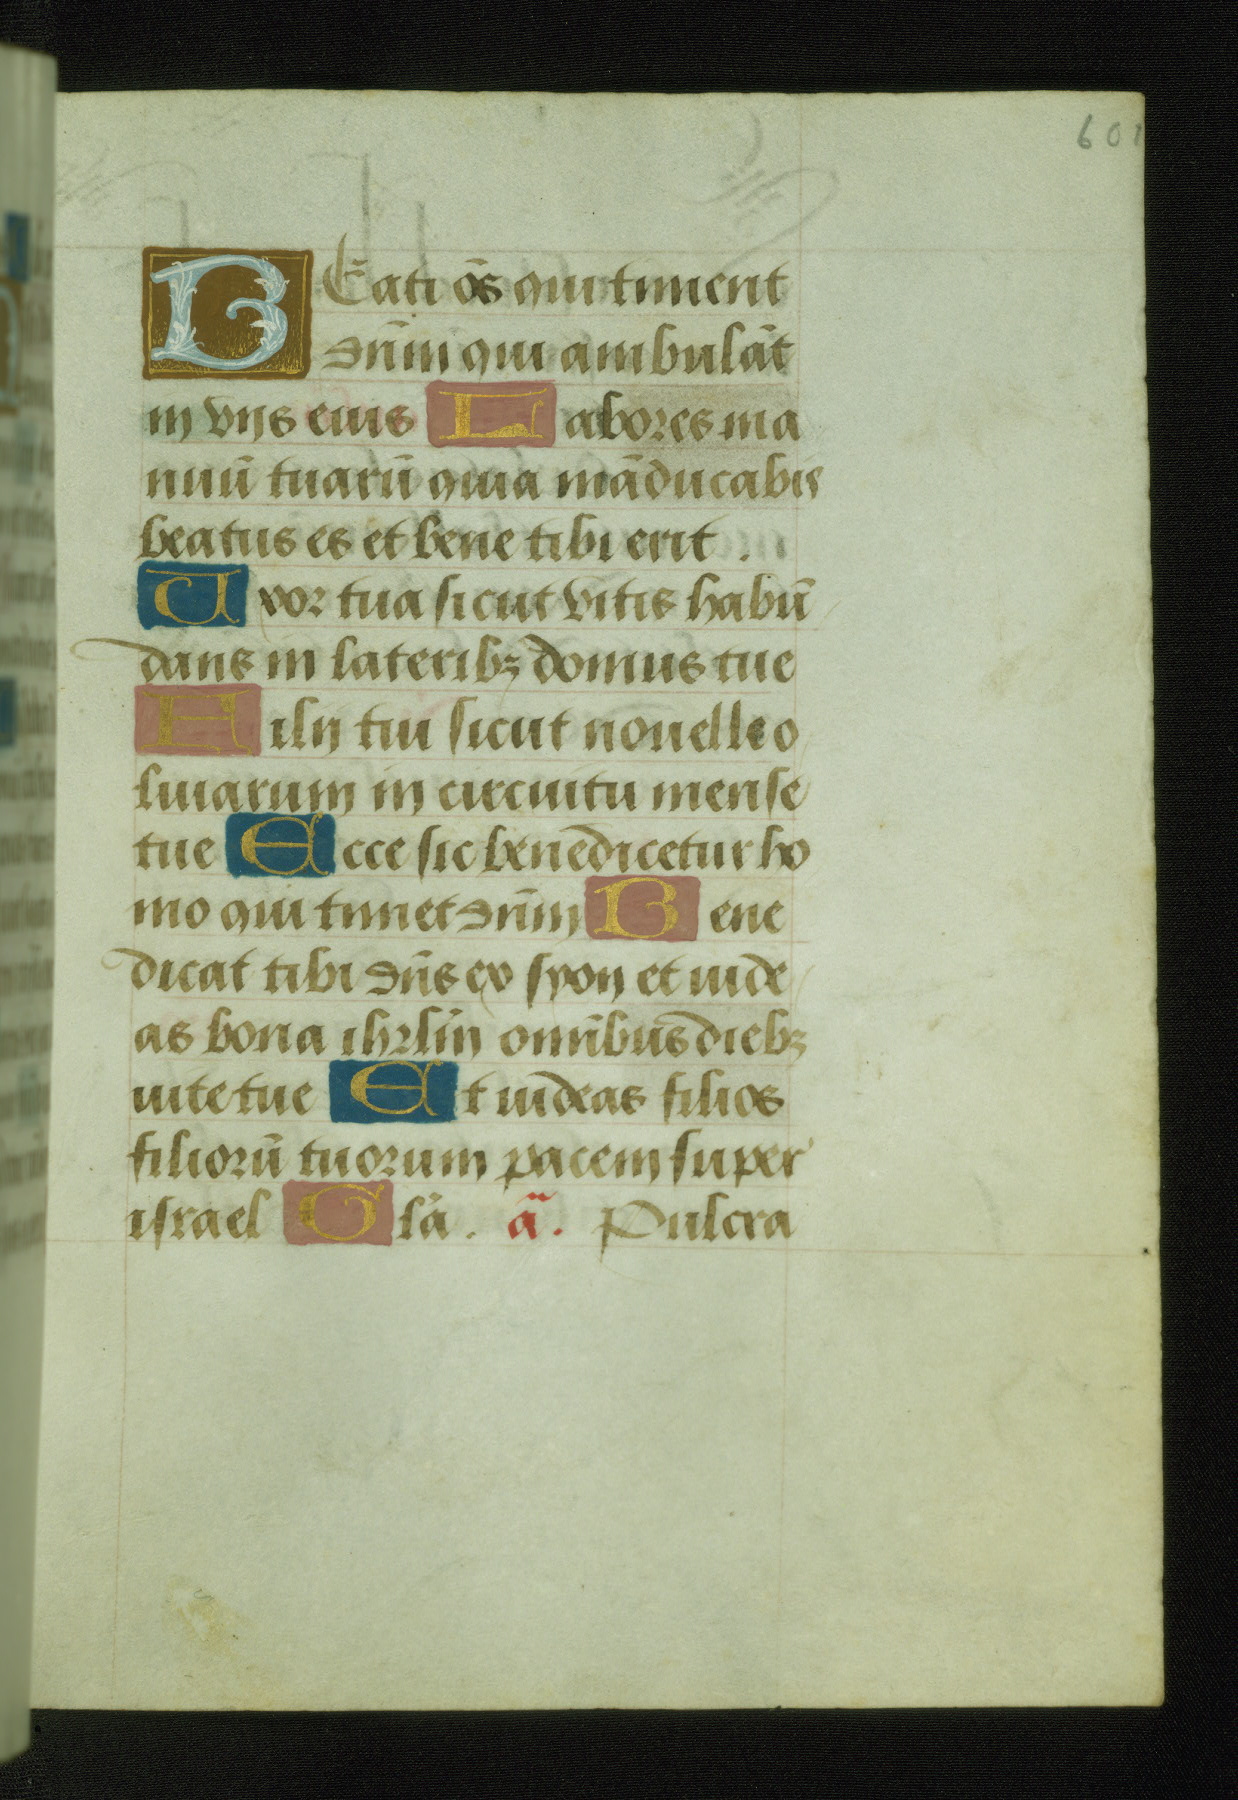 601
BEati o̅s qui timent
dn̅m qui ambula̅t
in vijs eius Labores ma
nuu̅ tuaru̅ quia ma̅ducabis
beatus es et bene tibi erit .
Uxor tua sicut vitis habu̅
dans in lateribꝫ domus tue
Filij tui sicut nouelle o
liuarum in circuitu mense
tue Ecce sic benedicetur ho
mo qui timet dn̅m Bene
dicat tibi dn̅s ex syon et uide
as bona ihrl̅m omn̅ibus diebꝫ
uite tue Et uideas filios
filioru̅ tuorum pacem super
israel Gl̅a . a̅. Pulcra